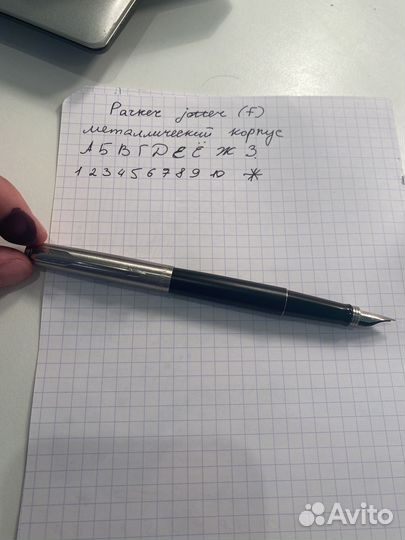 Parker jotter (F)
металлический корпус
А Б В Г Д Е Ё Ж З
1 2 3 4 5 6 7 8 9 10 *
Avito